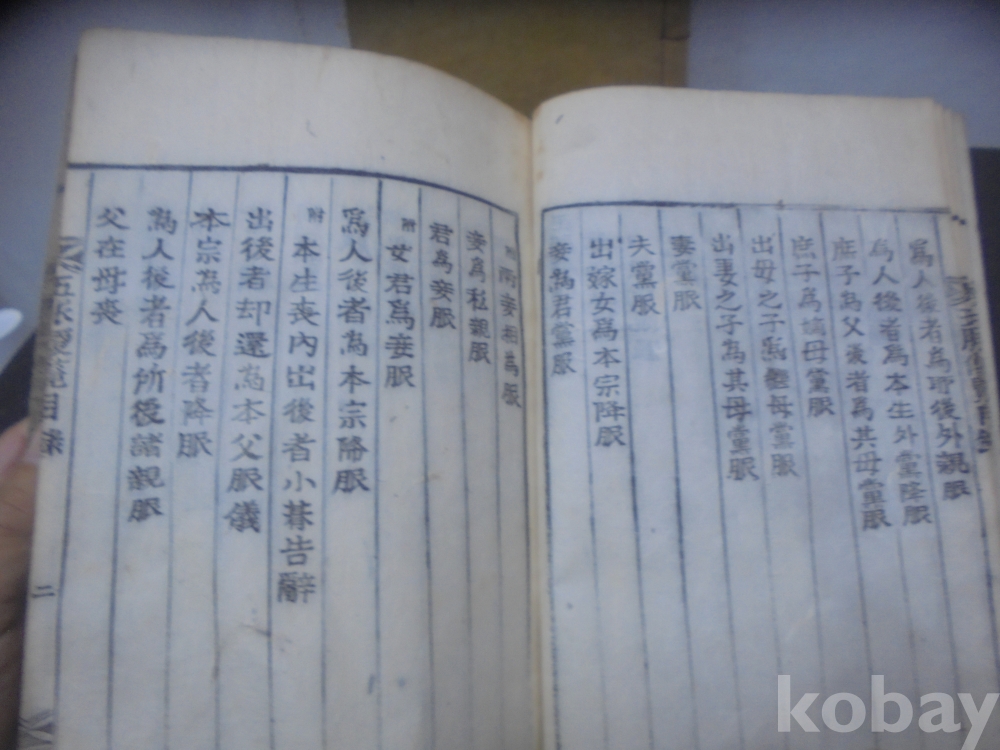 爲人後者爲所後外親服
爲人後者爲本生外黨降服
庶子爲父後者爲其母黨服
庶子爲嫡母黨服
出母之子爲繼母黨服
出妻之子爲其母黨服
妻黨服
夫黨服
出嫁女爲本宗降服
妾爲君黨服
附 兩妾相爲服
妾爲私親服
君爲妾服
附 女君爲妾服
爲人後者爲本宗降服
附 本生喪內出後者小朞告辭
出後者却還爲本父服儀
本宗爲人後者降服
爲人後者爲所後諸親服
父在母喪
目錄
二
kobay